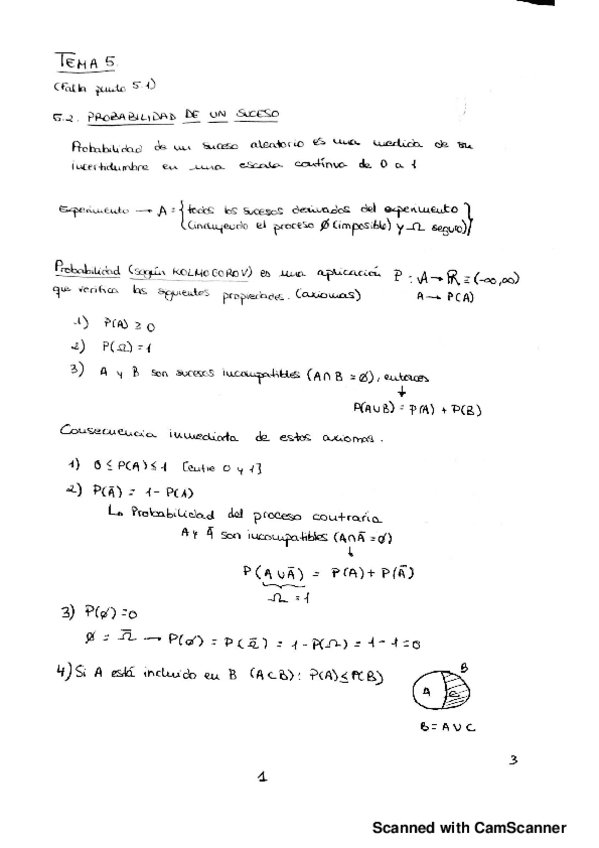 TEMA 5.
(Falta punto 5.1)
5.2. PROBABILIDAD DE UN SUCESO
Probabilidad de un suceso aleatorio es una medida de su
incertidumbre en una escala continua de 0 a 1
Experimento → A = {todos los sucesos derivados del experimento
(incluyendo el proceso Ø (imposible) y Ω seguro)}
Probabilidad (según KOLMOGOROV) es una aplicación P: A → ℝ ≡ (-∞,∞)
que verifica las siguientes propiedades. (axiomas) A → P(A)
1) P(A) ≥ 0
2) P(Ω) = 1
3) A y B son sucesos incompatibles (A∩B = Ø), entonces
↓
P(A∪B) = P(A) + P(B)
Consecuencia inmediata de estos axiomas.
1) 0 ≤ P(A) ≤ 1 [entre 0 y 1]
2) P(Ā) = 1 - P(A)
La Probabilidad del proceso contraria
A y Ā son incompatibles (A∩Ā = Ø)
↓
P(A∪Ā) = P(A) + P(Ā)
Ω = 1
3) P(Ø) = 0
Ø = Ω̄ → P(Ø) = P(Ω̄) = 1 - P(Ω) = 1 - 1 = 0
4) Si A está incluido en B (A⊂B): P(A) ≤ P(B)
B
A C
B = A∪C
3
1
Scanned with CamScanner